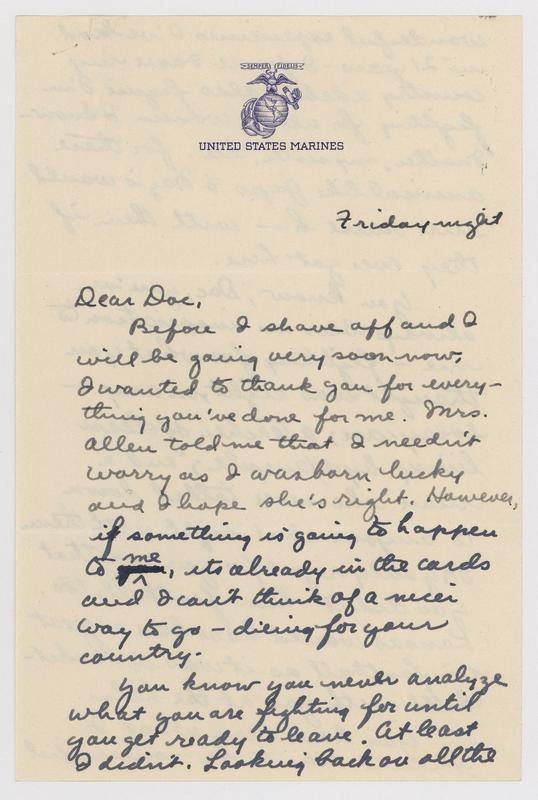 SEMPER FIDELIS
UNITED STATES MARINES
Friday night
Dear Doc,
Before I shove off and I
will be going very soon now,
I wanted to thank you for every-
thing you've done for me. Mrs.
Allen told me that I needn't
worry as I was born lucky
and I hope she's right. However,
if something is going to happen
to me, its already in the cards
and I can't think of a nicer
way to go – dieing for your
country.
You know you never analyze
what you are fighting for until
you get ready to leave. At least
I didn't. Looking back on all the